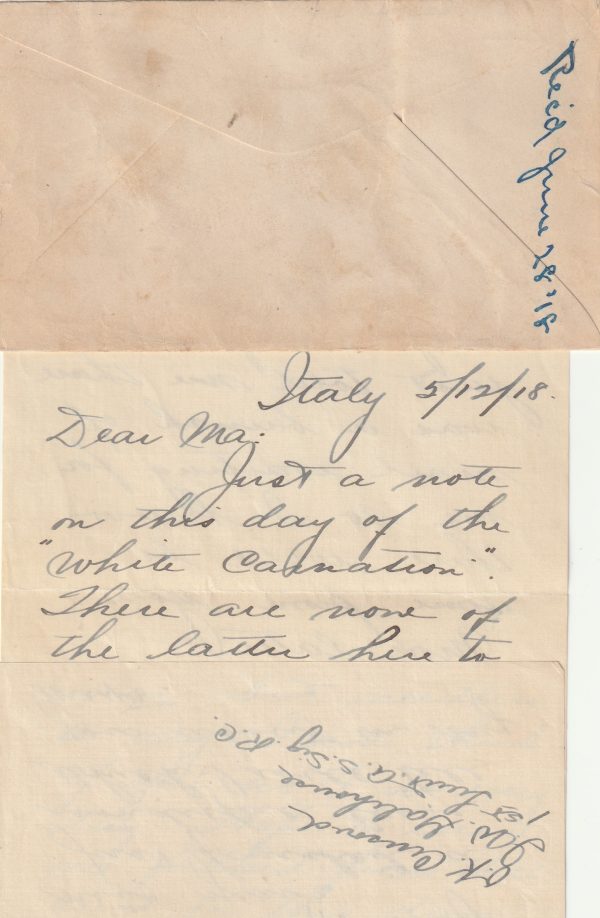 Rec'd June 28 '18
Italy 5/12/18.
Dear Ma:
Just a note
on this day of the
"White Carnation".
There are none of
the latter here to
O.K. Censored
J.W.
1st Lieut. A.S. Sig. R.C.